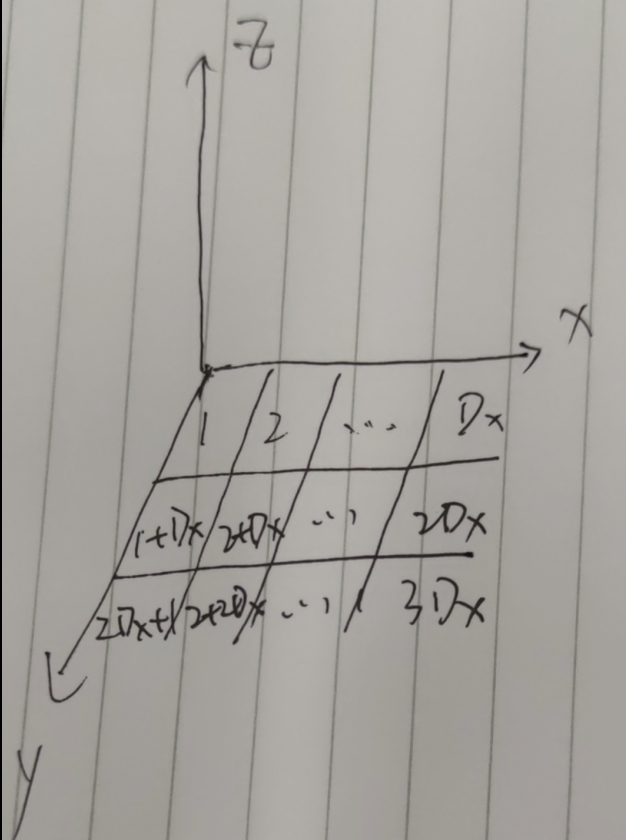 Z
X
1 2 ... Dx
1+Dx 2+Dx ... 2Dx
2Dx+1 2+2Dx ... 3Dx
y